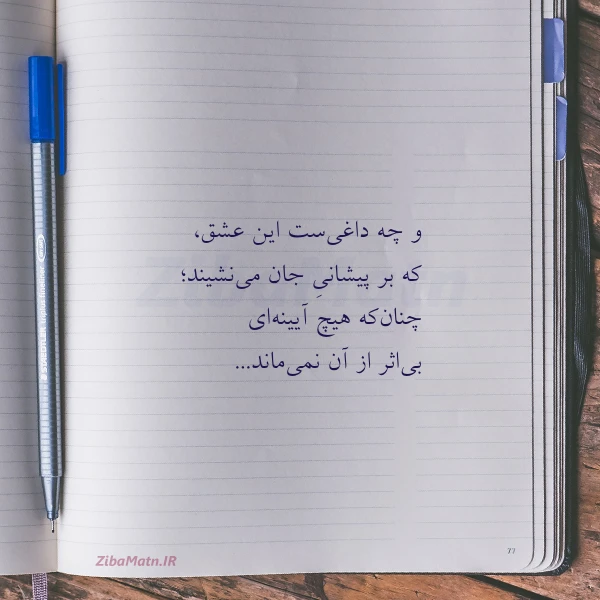 و چه داغی‌ست این عشق،
که بر پیشانیِ جان می‌نشیند؛
چنان‌که هیچ آیینه‌ای
بی‌اثر از آن نمی‌ماند...
ZibaMatn.IR
77